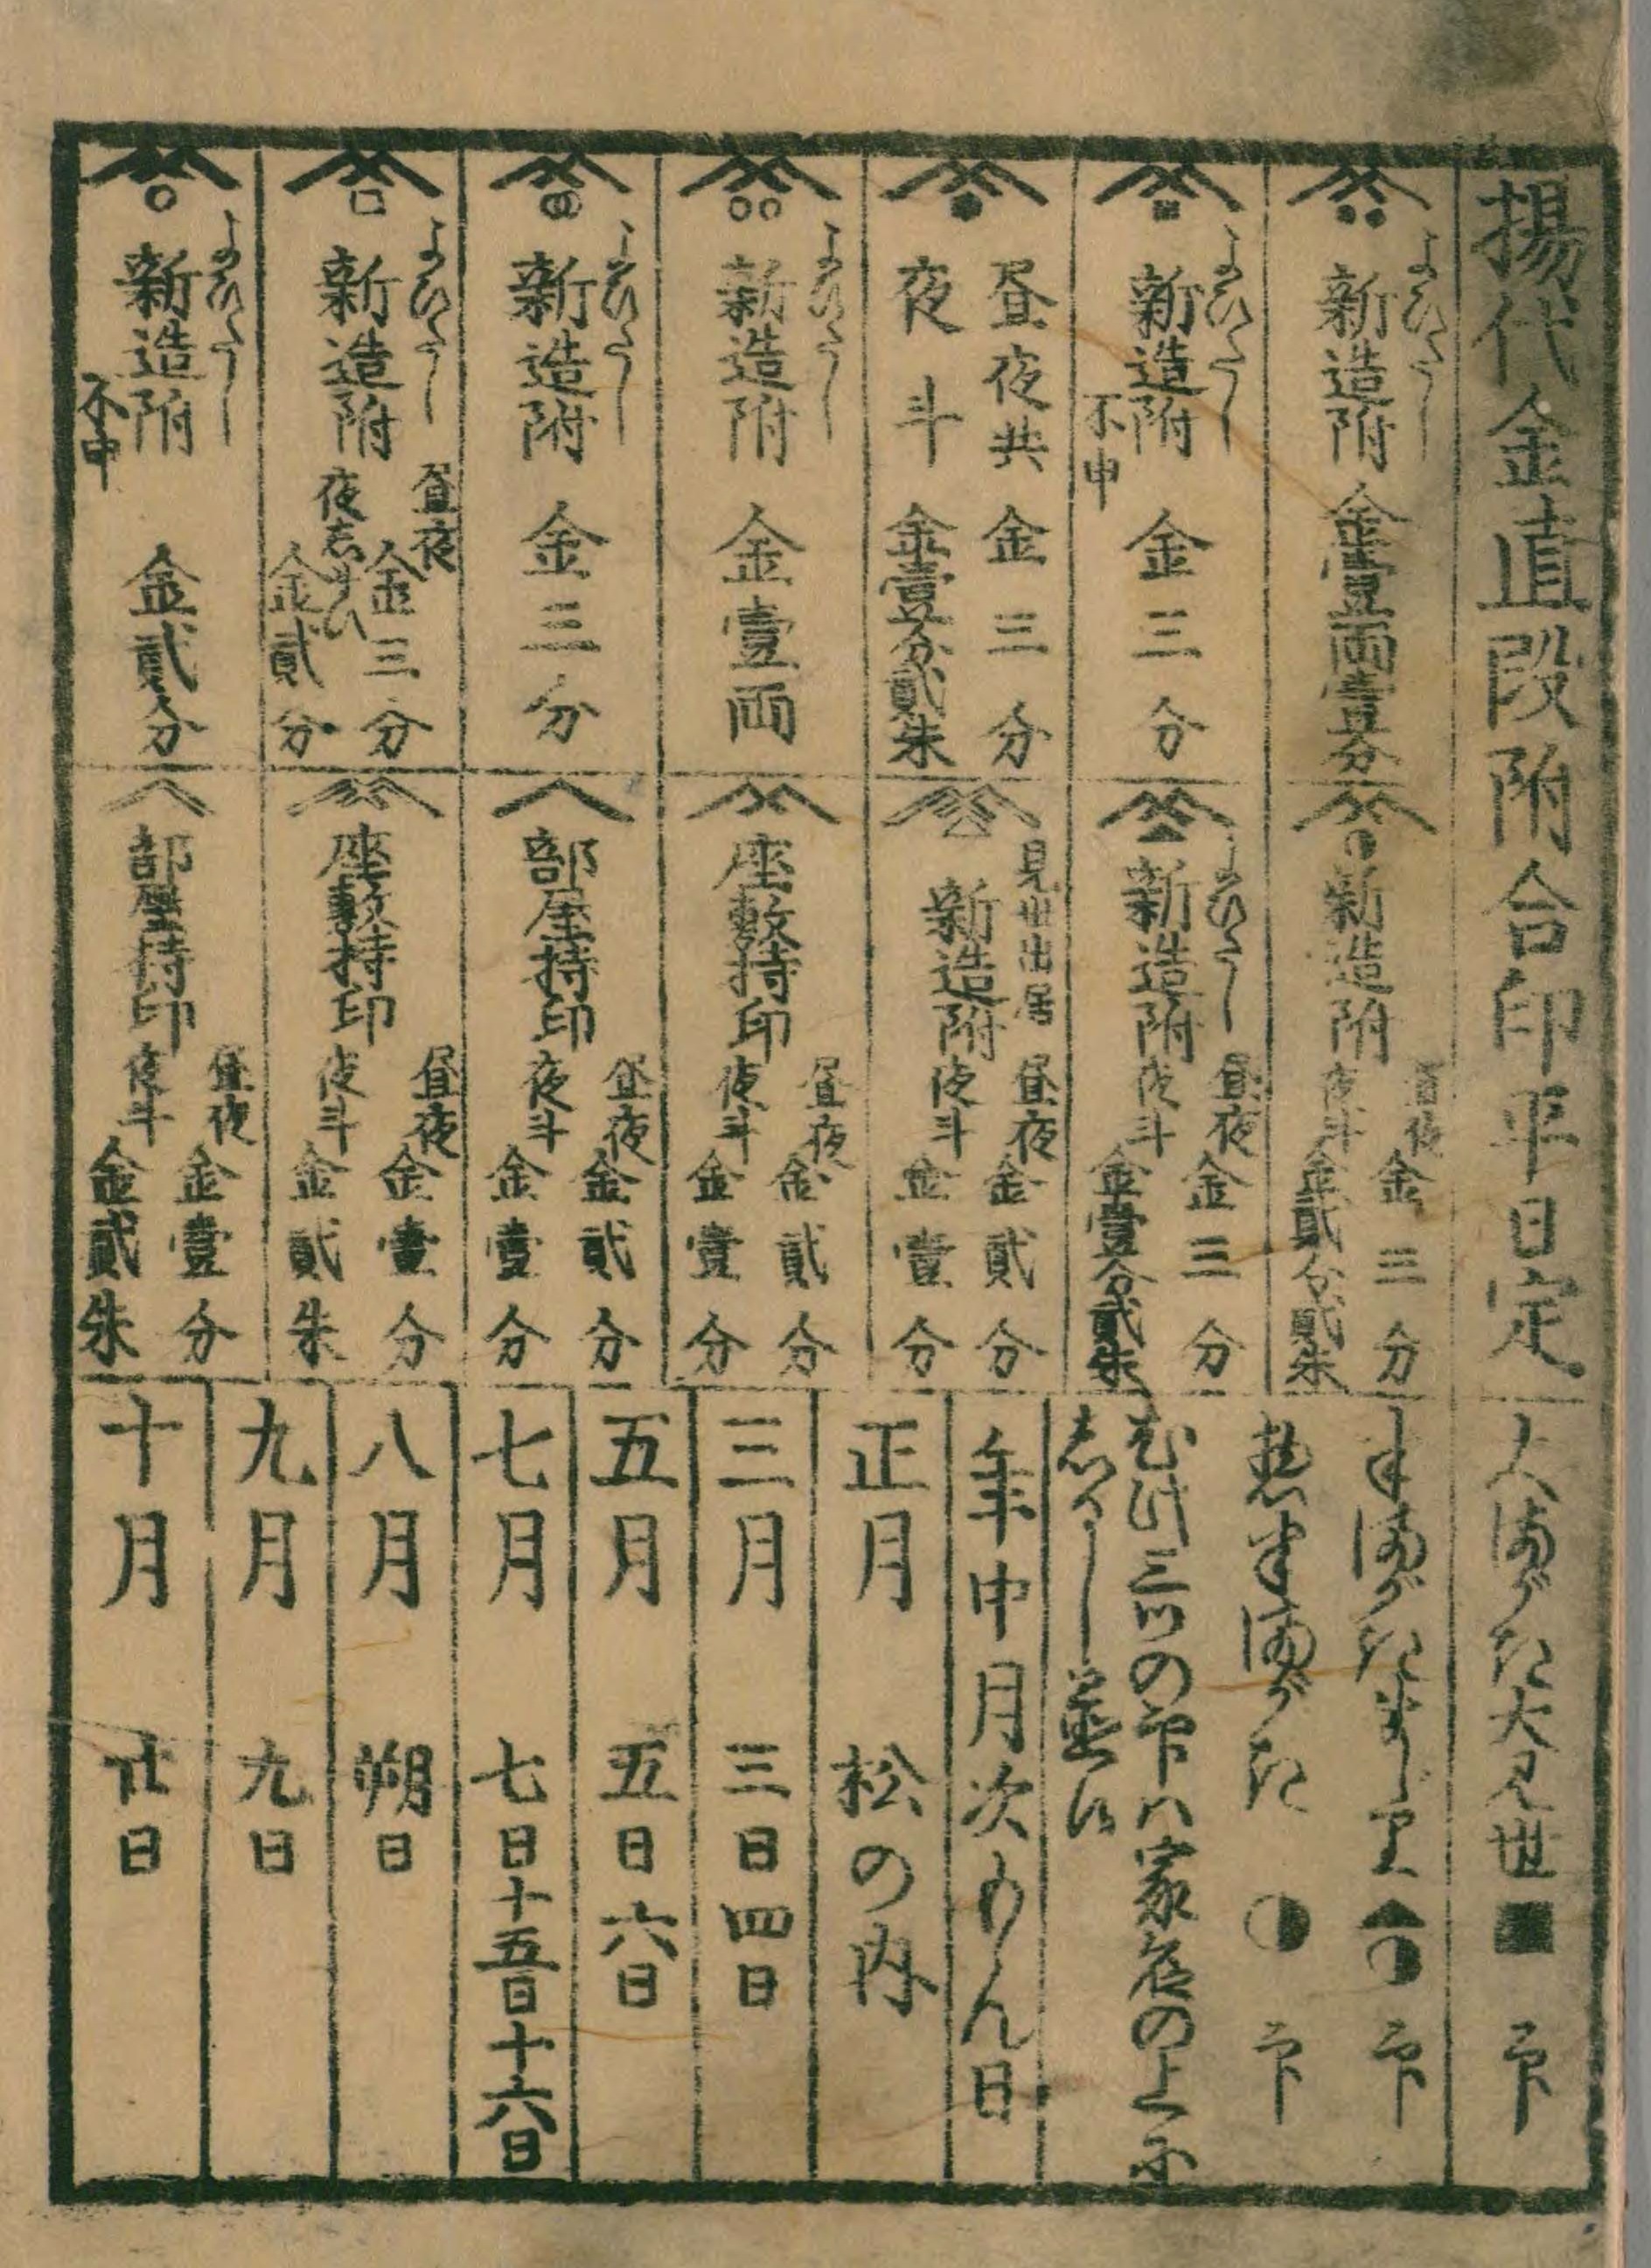 揚代金直段附合印平日定
よびだし
新造附
金壹両壹分
よびだし
新造附
不申
金三分
昼夜共金三分
夜斗金壹分貮朱
よびだし
新造附
金壹両
よびだし
新造附
金三分
よびだし
新造附
昼夜金三分
金貮分
よびだし
新造附
不申
金貮分
新造附
昼夜金三分
夜斗金貮分貮朱
よびだし
新造附
昼夜金三分
夜斗金壹分貮朱
見世出居
新造附
昼夜金貮分
夜斗金壹分
座敷持印
昼夜金貮分
夜斗金壹分
部屋持印
昼夜金貮分
夜斗金壹分
座敷持印
昼夜金壹分
夜斗金貮朱
部屋持印
昼夜金壹分
夜斗金貮朱
大満がき大見世■印
半満がきまじり◑印
惣半満がき◑印
此三ツの印ハ家名の上に
志るし並候
年中月次もん日
正月 松の内
三月 三日四日
五月 五日六日
七月 七日十五日十六日
八月 朔日
九月 九日
十月 廿日